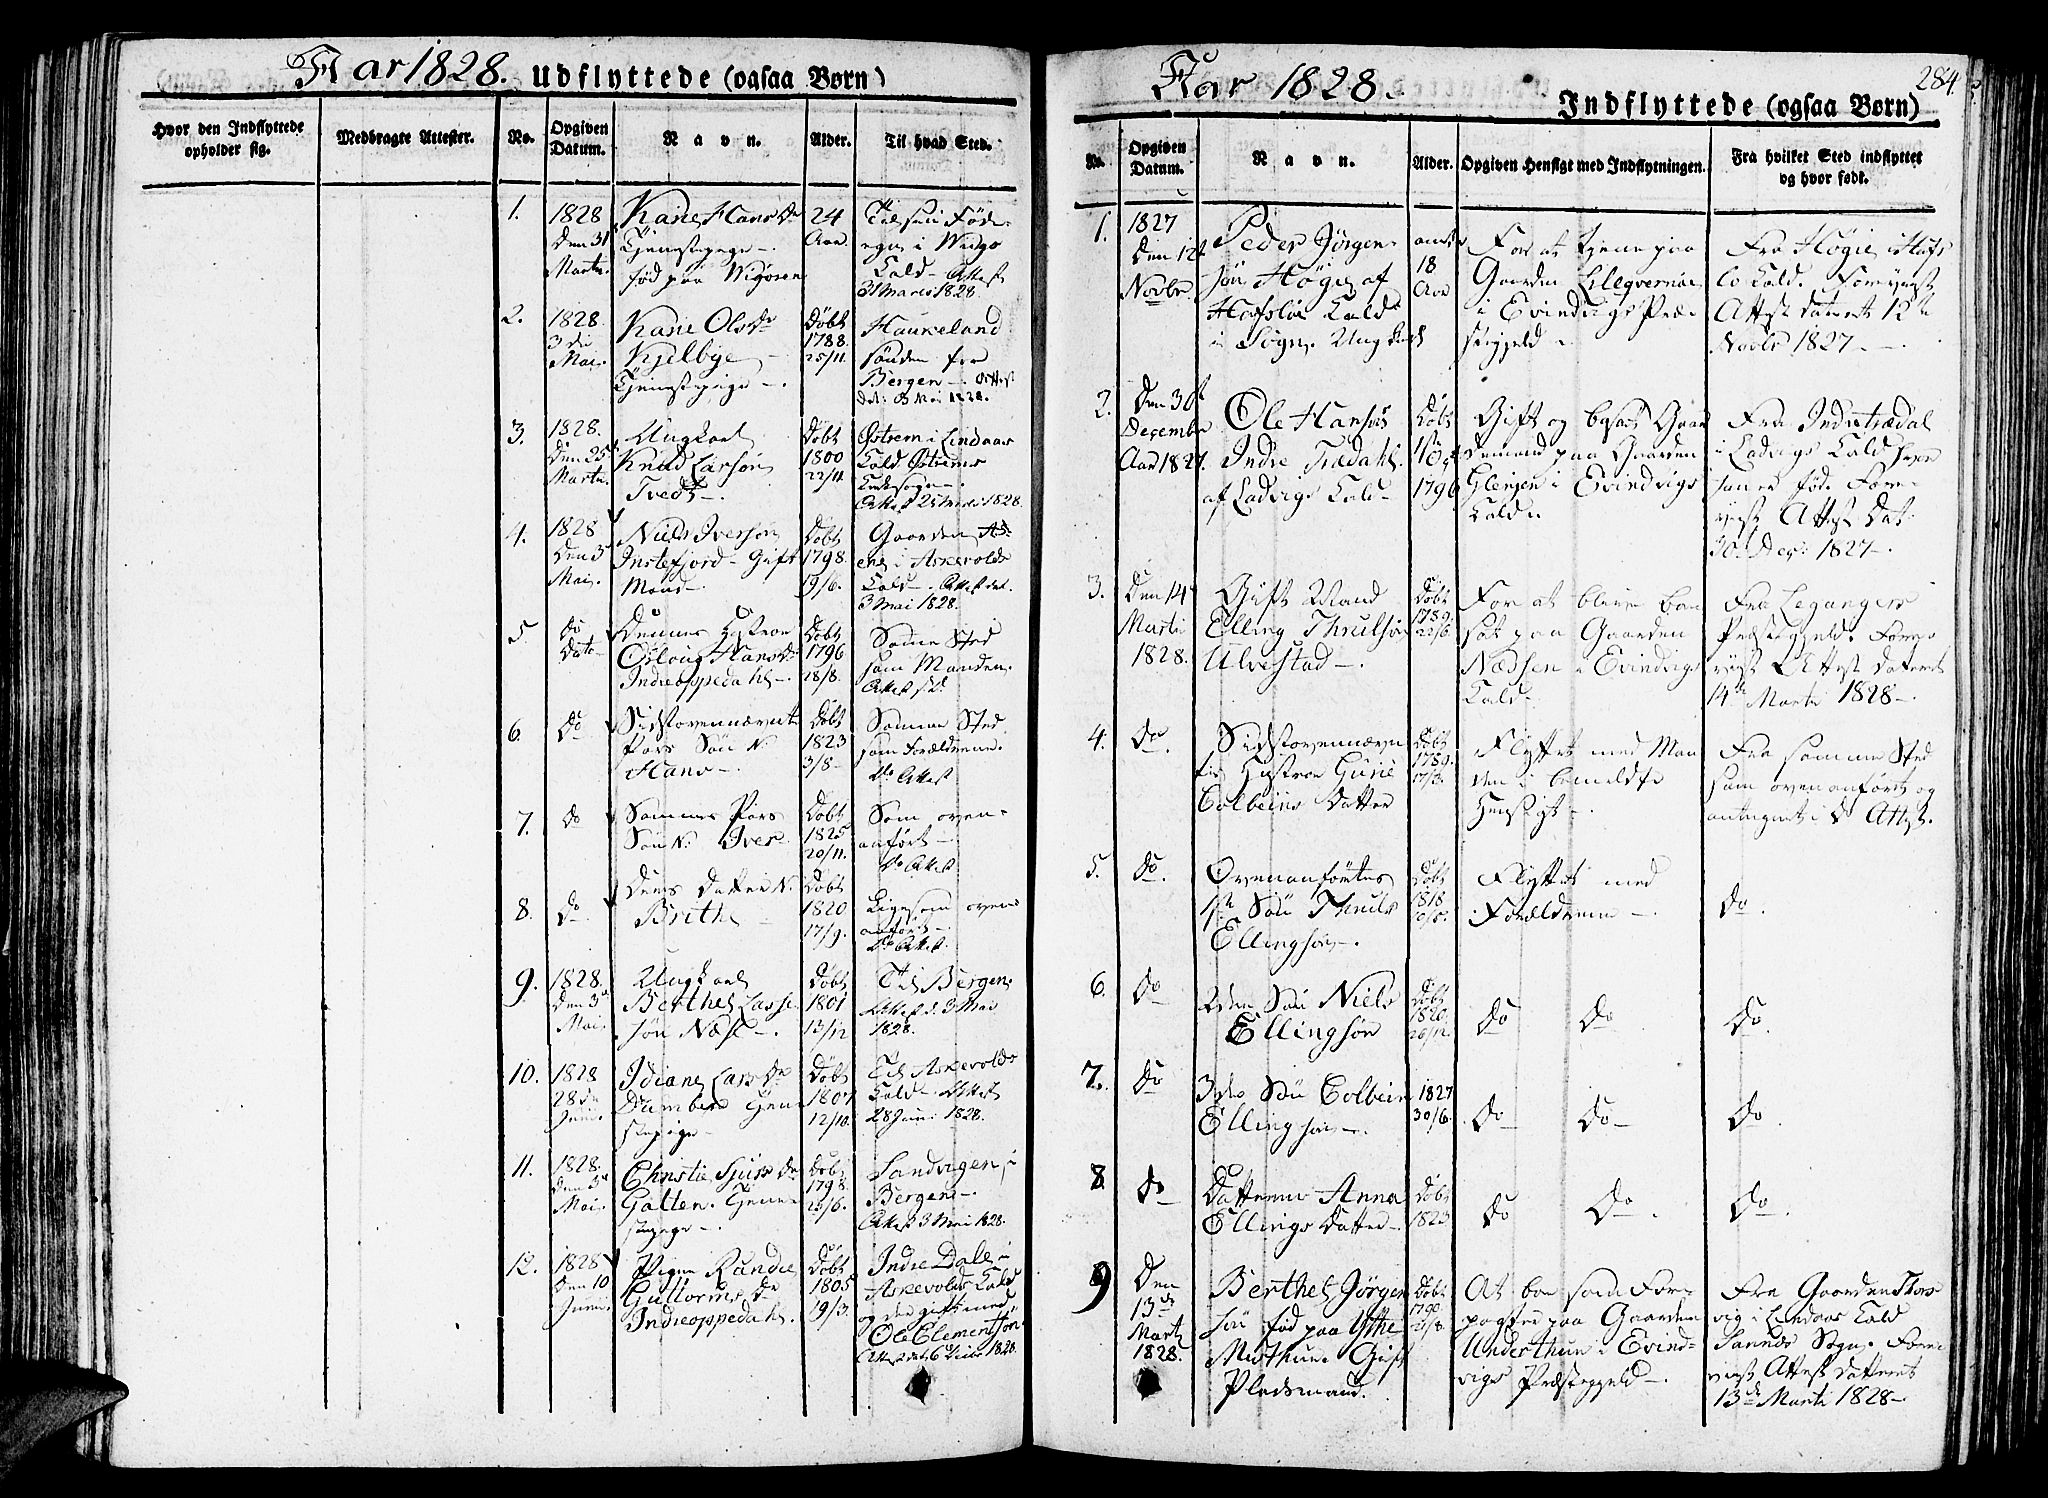 Aar 1828. Udflyttede (ogsaa Børn)
Hvor den Indflyttede
opholder sig.
Medbragte Attester.
No.
Opgiven
Datum.
Navn.
Alder.
Til hvad Sted.
1.
1828
Den 31
Martii.
Karie Hans Dr
Tjenestepige -
fød paa Wigøren
24
Aar.
Til sin Føde-
egn i
Kald - Attest
31 Marts 1828.
2.
1828.
3die
Mai.
Karie Ols Dr
Kjelbye -
Tjenestepige -.
Døbt
1788.
25/11.
Haukeland
sønden for
Bergen -. Attest
dat: 3 Mai 1828.
3.
1828.
Den 25
Martii.
Ungkarl
Knud Larsøn
Tvedt -.
Døbt
1800
22/11
Østrem i Lindaas
Kald Østrems
Kirkesogn -.
Attest 25 Marts 1828.
4.
1828
Den 3
Mai.
Niels Iversøn
Instefjord - Gift
Mand -
Døbt
1798.
19/6.
Gaarden
i Askevolds
Kald -. Attest dat.
3 Mai 1828.
5
Do
Dato
Dennes Hustrue
Oslaug Hans Dr
Indreoppedahl -.
Døbt
1796
18/8.
Samme Sted
som Manden.
Attest s. D.
6.
Do
Sidstovennævnte
Pars Søn N.
Hans -.
Døbt
1823
3/8 -
Samme Sted
som Forældrene.
Do Attest
7.
Do
Sammes Pars
Søn N. Iver
Døbt
1825
20/11.
Som oven-
anført -.
Do Attest
8.
Do
Deres Datter N.
Brithe
Døbt
1820
17/9.
Ligesom oven
anført -.
Do Attest.
9.
1828.
Den 3
Mai.
Ungkarl
Berthel Lasse
søn Næse -.
Døbt
1801
13/12
Til Bergen.
Attest d. 3 Mai
1828.
10.
1828
28de
Junii.
Idiane Lars Dr
Dumbere Tjene
stepige -
Døbt
1807
12/10.
Til Askevolds
Kald - Attest
28 Juni 1828.
11.
1828.
Den 3
Mai.
Christie Siurs Dr
Galten. Tjene-
stepige -.
Døbt
1798.
23/6.
Sandvigen i
Bergen -.
Attest 3 Mai 1828.
12.
1828
Den 10
Junii.
Pigen Randie
Guttorms Dr
Indreoppedahl.
Døbt
1805
19/3.
Indre Dale i
Askevolds Kald
og der gift med
Ole Clementsøn
Aar 1828.
284
Indflyttede (ogsaa Børn)
No.
Opgiven
Datum.
Navn.
Alder.
Opgiven Hensigt med Indflytningen.
Fra hvilket Sted indflyttet
og hvor født.
1.
1827
Den 12t
Novbr
Peder Jørgen-
søn Høgie af
Hafsloe Kald
i Sogn. Ungkarl
18
Aar
For at tjene paa
Gaarden Lilleqvernøe
i Evindvigs Præ-
stegjeld -
Fra Høgie i Hafs
lo Kald. Foreviist
Attest dateret 12te
Novbr 1827 -.
2.
Den 30t
December
Aar 1827.
Ole Hansøn
Indre Trædahl.
af Ladvigs Kald -
Døbt
1796
Gift og bosat Gaar
demand paa Gaarden
Glenjen i Evindvigs
Kald -.
Fra Indretrædal
i Ladvigs Kald hvor
han er fød. Fore-
viist Attest Dat.
30 Der: 1827 -.
3.
Den 14
Martii
1828.
Gift Mand
Elling Thrulsøn
Ulvestad -.
Døbt
1789.
22/6.
For at blive bo
sat paa Gaarden
Nædsen i Evindvigs
Kald -
Fra Legangers
Præstegjeld. Fore
viist Attest dateret
14de Martii 1828 -.
4.
Do.
Sidstovennævn
tes Hustrue Gurie
Colbeins Datter
Døbt
1789.
Flyttet med Man
den i bemeldte
Hensigt -.
Fra samme Sted
som ovenanført og
antegnet i Do Attest.
5.
Do.
Ovenanførtes
1ste Søn Thruls
Ellingsøn -.
Døbt
1818
Flyttet med
Forældrene -.
Do.
6.
Do
2den Søn Niels
Ellingsøn
Døbt
1820.
26/12.
Do Do
Do.
7.
Do
3die Søn Colbein
Ellingsøn -.
1827
30/6.
Do Do
Do.
8
Do
Datteren Anna
Ellings Datter -
Døbt
1823
Do Do.
Do.
9
Den
13de
Martz
1828.
Berthel Jørgen
søn fød paa Ytre
Muthun. Gift
Pladsmand.
Døbt
1790.
21/8.
At boe som For-
pagter paa Gaarden
Underthun i Evind-
vigs Præstegjeld -.
Fra Gaarden
vig i Lindaas Kald
Sognd. Fore
viist Attest dateret
13de Martii 1828 -